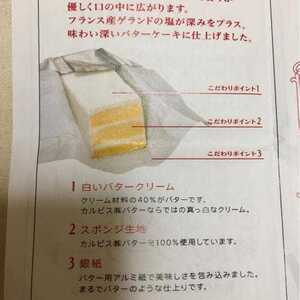 優しく口の中に広がります。
フランス産ゲランドの塩が深みをプラス。
味わい深いバターケーキに仕上げました。
こだわりポイント1
こだわりポイント2
こだわりポイント3
1 白いバタークリーム
クリーム材料の40%がバターです。
カルピス㈱バターならではの真っ白なクリーム。
2 スポンジ生地
カルピス㈱バターを100%使用しています。
3 銀紙
バター用アルミ紙で美味しさを包み込みました。
まるでバターのような仕上りです。